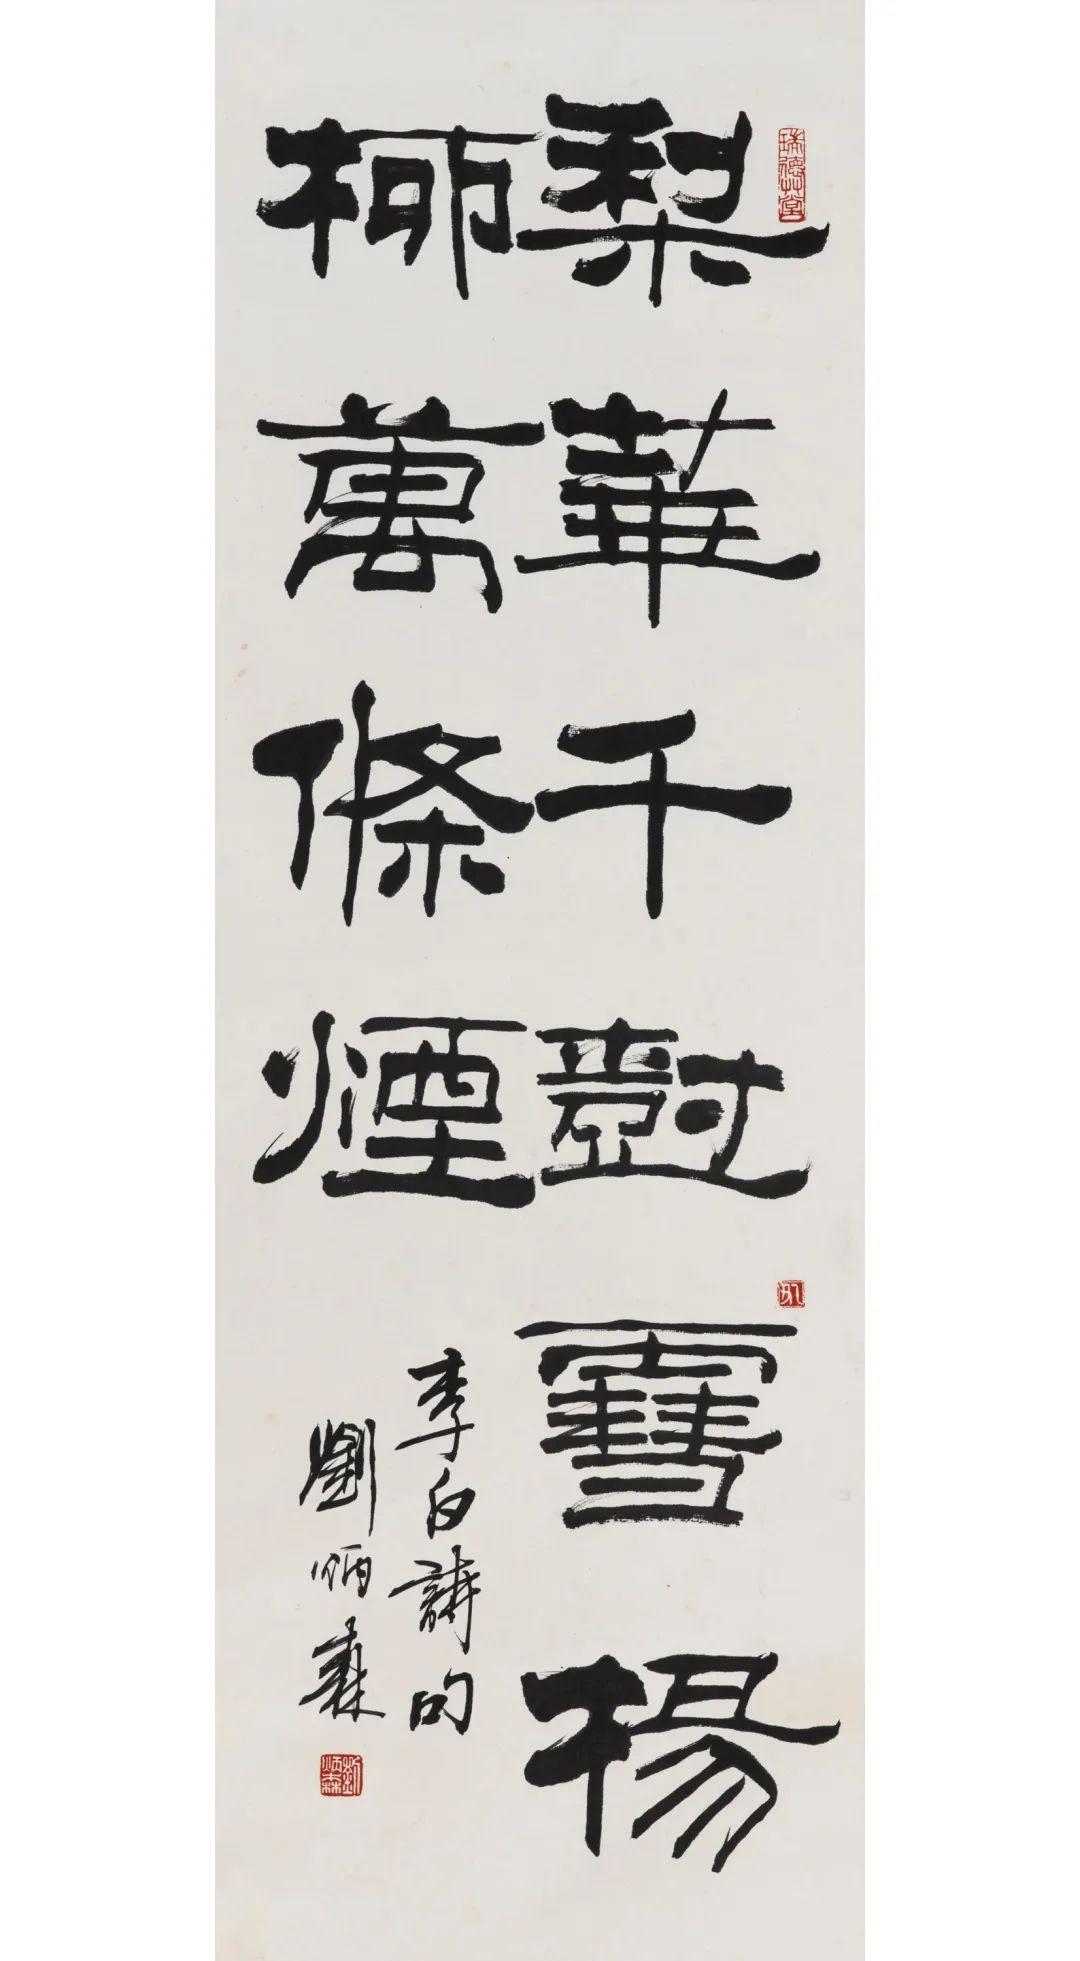 梨華千樹雪楊
柳萬條煙
李白詩句
劉炳森
劉炳森